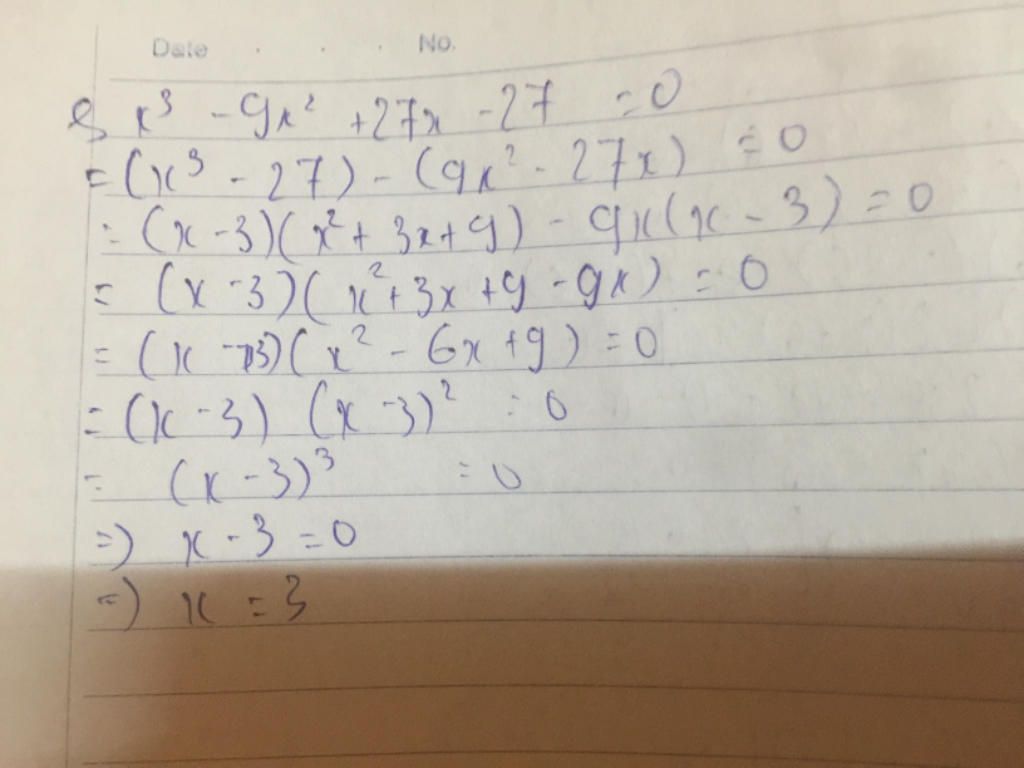 Date . . . No.
8 x³ - 9x² + 27x - 27 = 0
= (x³ - 27) - (9x² - 27x) = 0
= (x - 3)(x² + 3x + 9) - 9x(x - 3) = 0
= (x - 3)(x² + 3x + 9 - 9x) = 0
= (x - 3)(x² - 6x + 9) = 0
= (x - 3) (x - 3)² = 0
= (x - 3)³ = 0
=) x - 3 = 0
=) x = 3